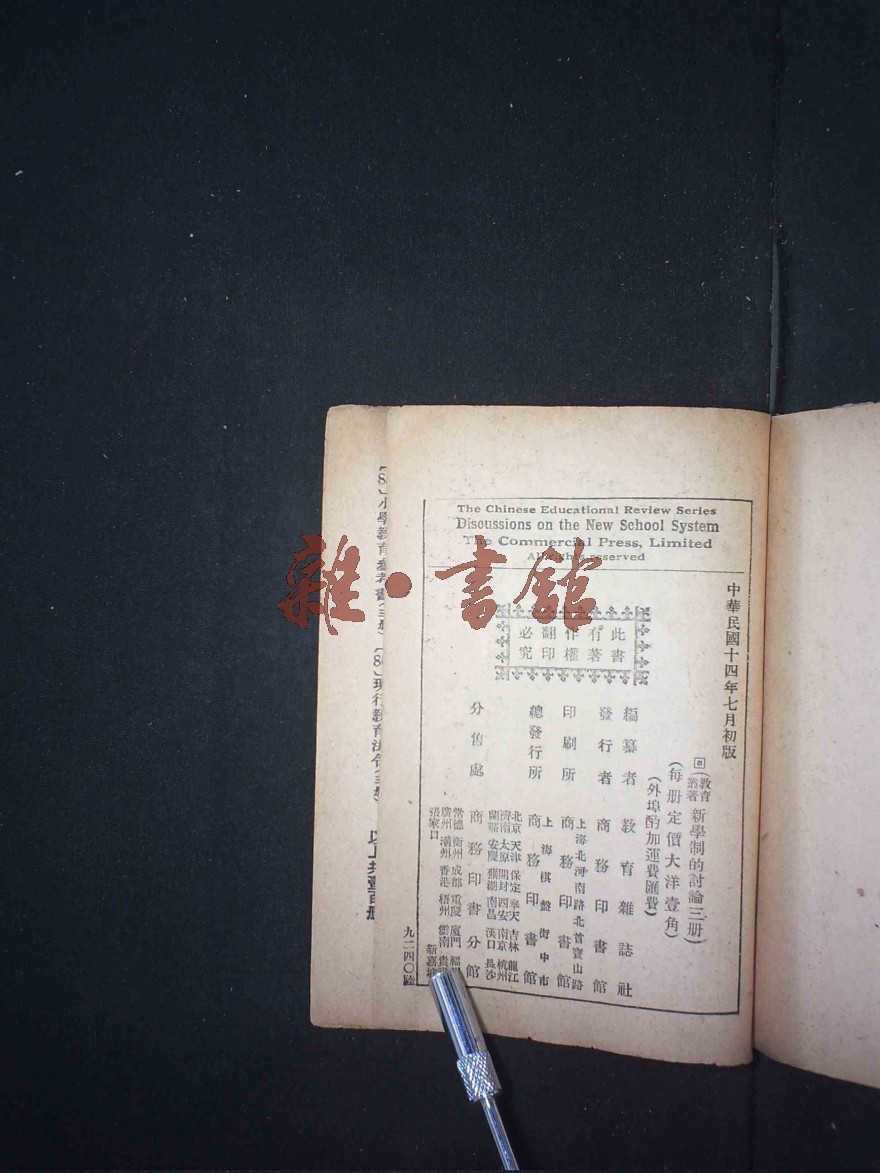 The Chinese Educational Review Series
Discussions on the New School System
The Commercial Press, Limited
All rights reserved
中華民國十四年七月初版
(教育叢著)新學制的討論三册)
(每册定價大洋壹角)
(外埠酌加運費匯費)
此書
有著
作權
翻印
必究
編纂者 教育雜誌社
發行者 商務印書館
上海北河南路北首寶山路
印刷所 商務印書館
上海棋盤街中市
總發行所 商務印書館
北京 天津 保定 奉天 吉林 龍江
濟南 太原 開封 西安 南京 杭州
蘭谿 安慶 蕪湖 南昌 漢口 長沙
分售處 商務印書分館
常德 衡州 成都 重慶 廈門 福
廣州 潮州 香港 梧州 雲南 貴
張家口 新嘉坡
九二四〇陸
小學教育參考書(三册)
[86]現行教育法令(三册)
以上共壹百册
雜·書館